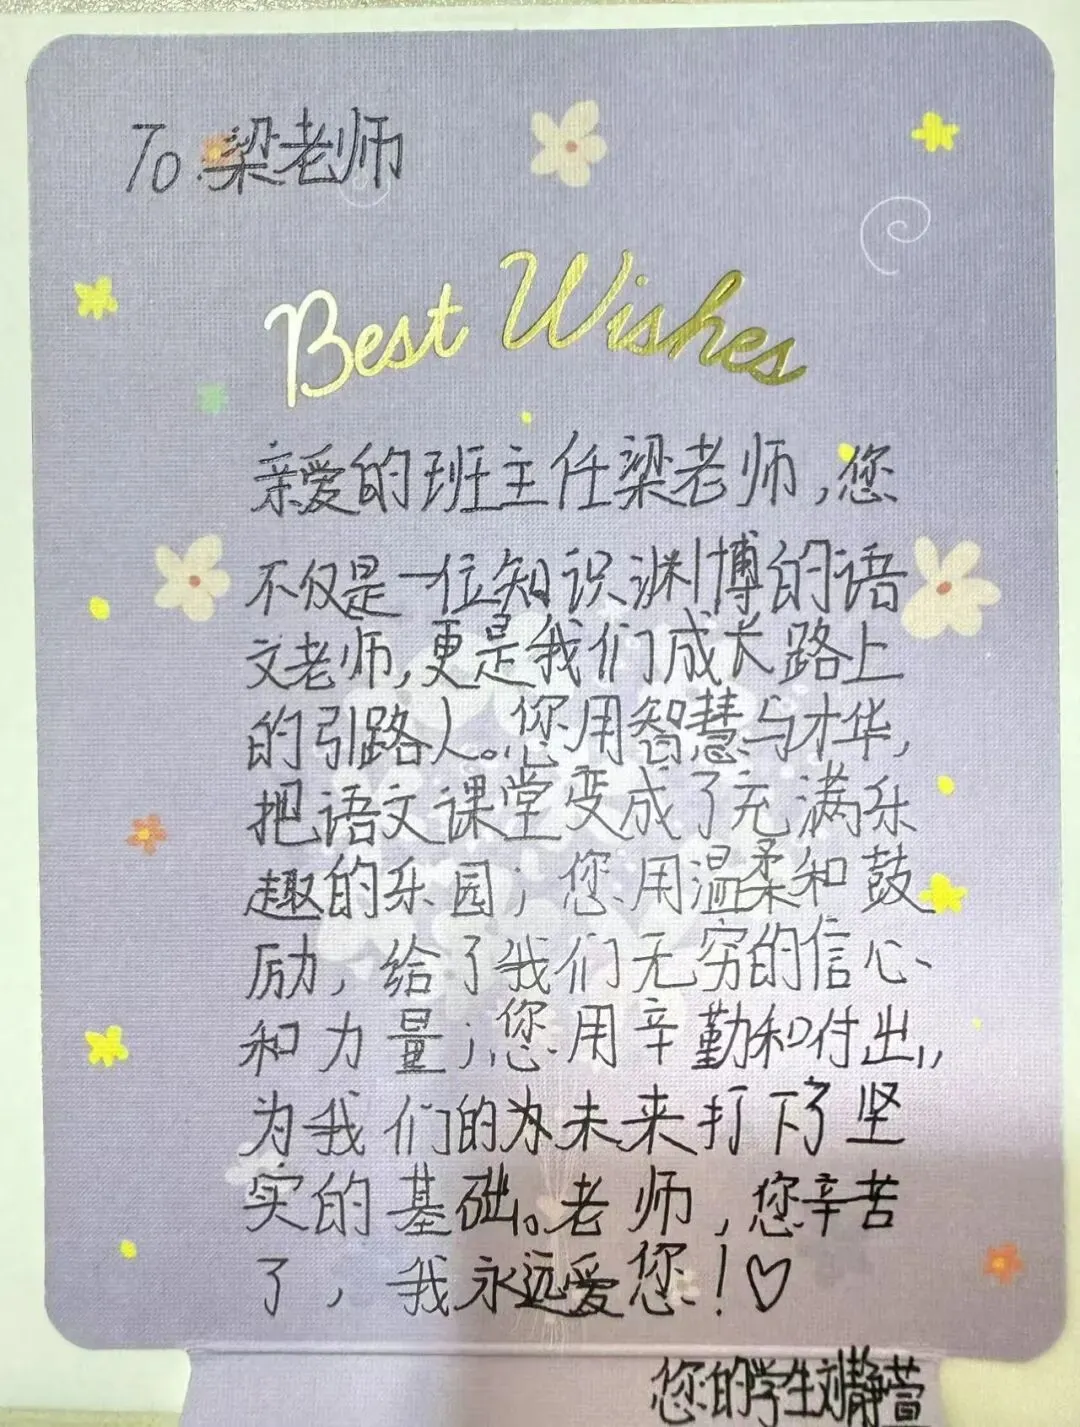 To.梁老师
Best Wishes
亲爱的班主任梁老师,您
不仅是一位知识渊博的语
文老师,更是我们成长路上
的引路人。您用智慧与才华,
把语文课堂变成了充满乐
趣的乐园；您用温柔和鼓
励，给了我们无穷的信心、
和力量；您用辛勤和付出,
为我们的为未来打下了坚
实的基础。老师，您辛苦
了，我永远爱您！♡
您的学生刘静萱